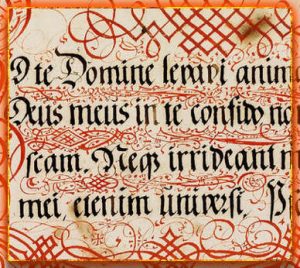 D te Domine levavi anim
Deus meus in te confido no
scam. Neq3 irrideant
mei, etenim universi.